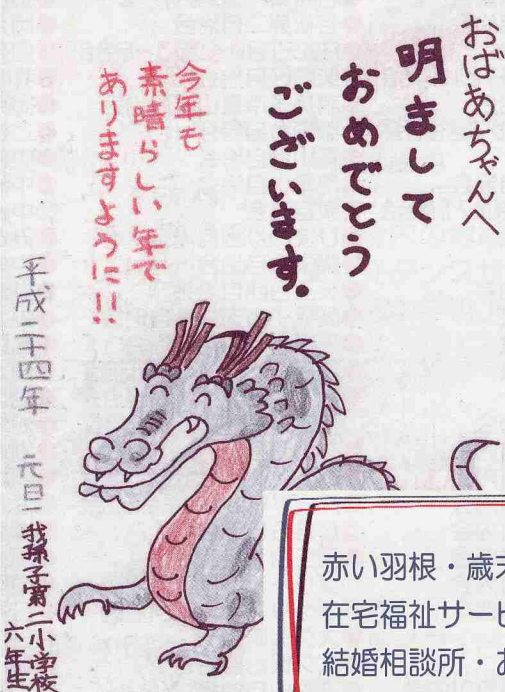 おばあちゃんへ
明まして
おめでとう
ございます。
今年も
素晴らしい年で
ありますように!!
平成二十四年 元日
我孫子第二小学校
六年生
赤い羽根・歳
在宅福祉サー
結婚相談所・